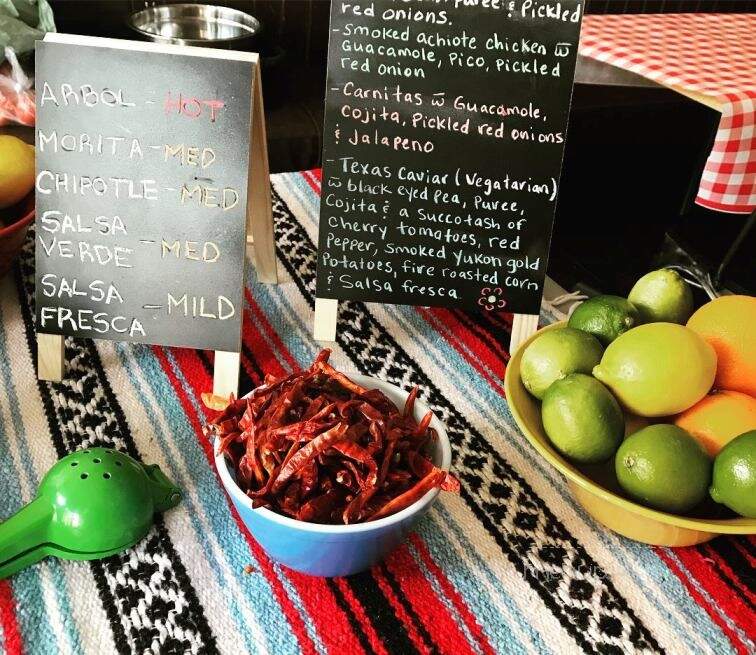 ARBOL - HOT
MORITA - MED
CHIPOTLE - MED
SALSA
VERDE - MED
SALSA
FRESCA - MILD
puree & Pickled
red onions.
- Smoked achiote chicken w
Guacamole, Pico, pickled
red onion
- Carnitas w Guacamole,
Cojita, Pickled red onions
& Jalapeno
- Texas Caviar (Vegatarian)
w black eyed pea, Puree,
Cojita & a succotash of
cherry tomatoes, red
Pepper, smoked Yukon gold
Potatoes, fire roasted corn
& Salsa fresca